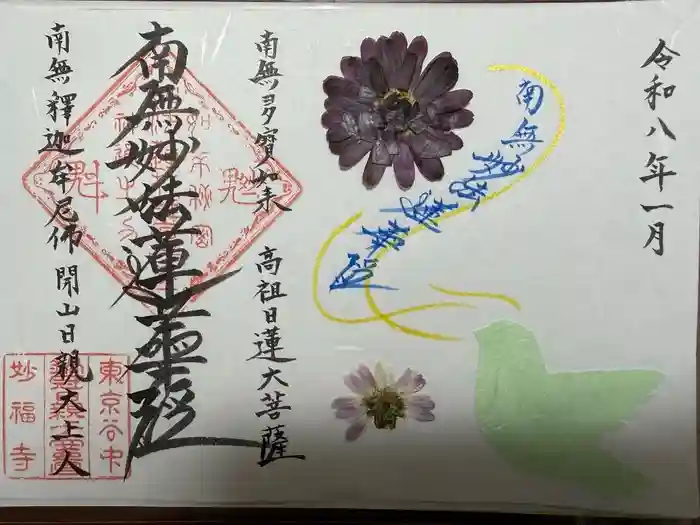 令和八年一月
南無妙法蓮華経
南無多寶如来 高祖日蓮大菩薩
南無妙法蓮華経
南無釋迦牟尼佛 開山日親大上人
東京谷中
妙福寺